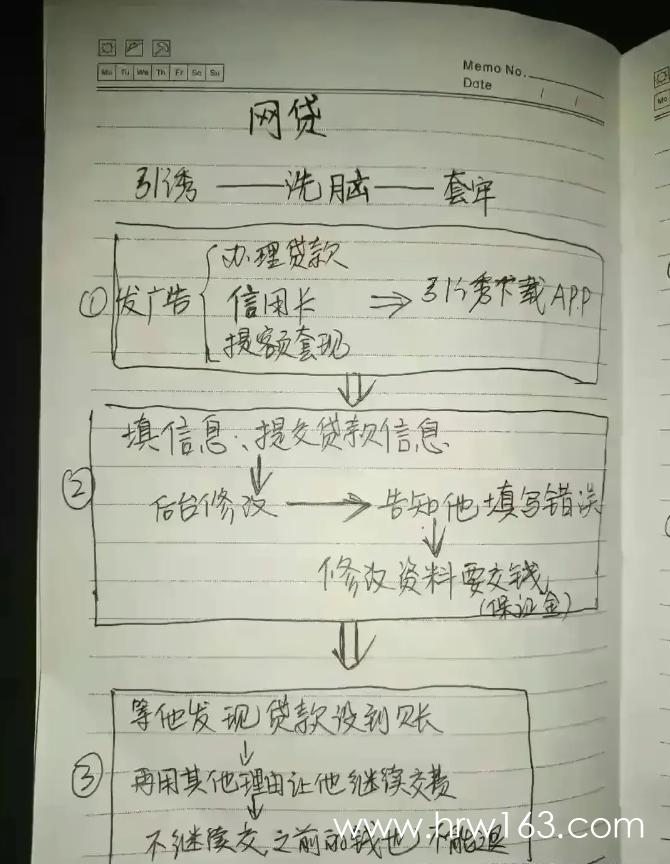 Memo No.
Mo Tu We Th Fr Sa Su
Date / /
网贷
引诱 —— 洗脑 —— 套牢
① 发广告 { 办理贷款
信用卡 ⇒ 引诱下载APP
提额套现
⇓
② 填信息、提交贷款信息
↓
后台修改 → 告知他填写错误
↓
修改资料要交钱
(保证金)
⇓
③ 等他发现贷款没到账
↓
再用其他理由让他继续交费
↓
不继续交之前的钱也不能退
www.hrw163.com